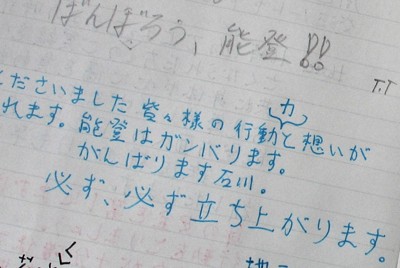 がんばろう、能登!!
T.T
力
くださいました皆々様の行動と想いが
れます。能登はガンバります。
がんばります石川。
必ず、必ず立ち上がります。